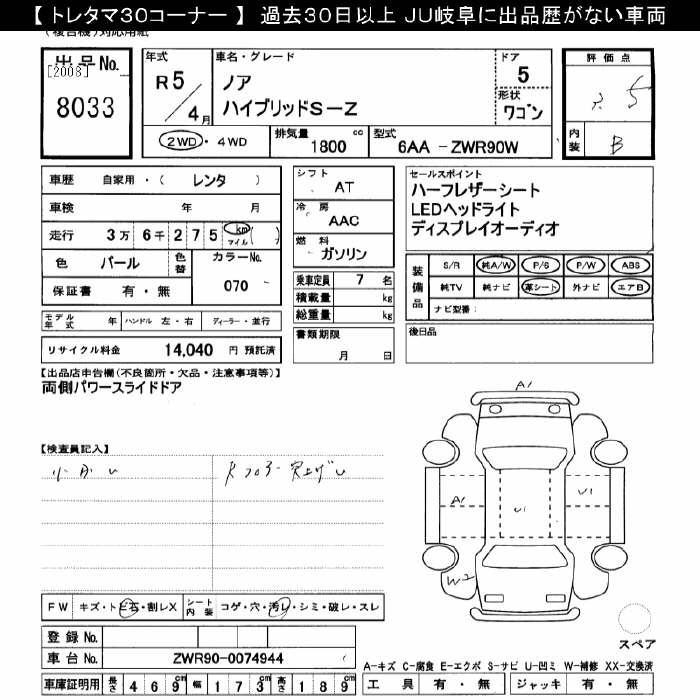 【 トレタマ30コーナー 】 過去30日以上 JU岐阜に出品歴がない車両
(複合機)対応用紙
出品No.
[2008]
8033
年式
R5/4月
車名・グレード
ノア
ハイブリッドS-Z
ドア
5
形状
ワゴン
2WD・4WD
排気量 1800 cc
型式 6AA -ZWR90W
評価点
5
内装 B
車歴 自家用・( レンタ )
車検 年 月
走行 3万 6千 2 7 5 km マイル ( )
色 パール 色替
カラーNo. 070
保証書 有・無
モデル年式 年 ハンドル 左・右 ディーラー・並行
リサイクル料金 14,040 円 預託済
シフト AT
冷房 AAC
燃料 ガソリン
乗車定員 7 名
積載量 kg
総重量 kg
書類期限
月 日
セールスポイント
ハーフレザーシート
LEDヘッドライト
ディスプレイオーディオ
装備品
S/R 純A/W P/S P/W ABS
純TV 純ナビ 革シート 外ナビ エアB
ナビ型番:
後日品
【出品店申告欄(不良箇所・欠品・注意事項等)】
両側パワースライドドア
【検査員記入】
A1
A1
U1
U1
W2
FW キズ・トビ石・割レX
シート内装 コゲ・穴・汚レ・シミ・破レ・スレ
登録 No.
車台 No. ZWR90-0074944
車庫証明用 長さ 4 6 9cm 幅 1 7 3cm 高さ 1 8 9cm
スペア
A-キズ C-腐食 E-エクボ S-サビ U-凹ミ W-補修 XX-交換済
工具 有・無 ジャッキ 有・無